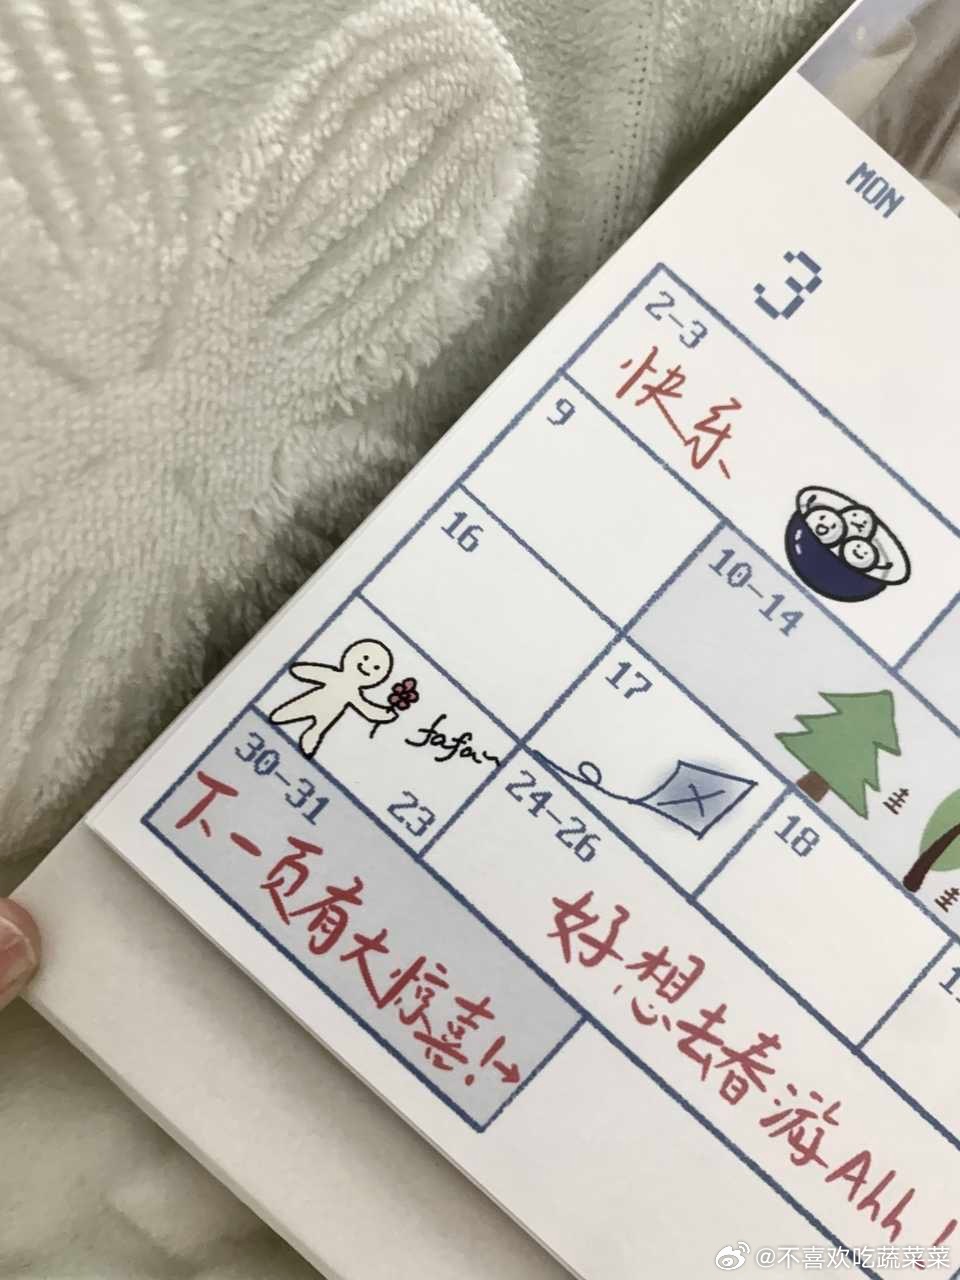 MON
3
2-3
快乐
9
10-14
16
17
18
23
fafa
24-26
好想去春游Ahh!
30-31
下一页有大惊喜!→
@不喜欢吃蔬菜菜